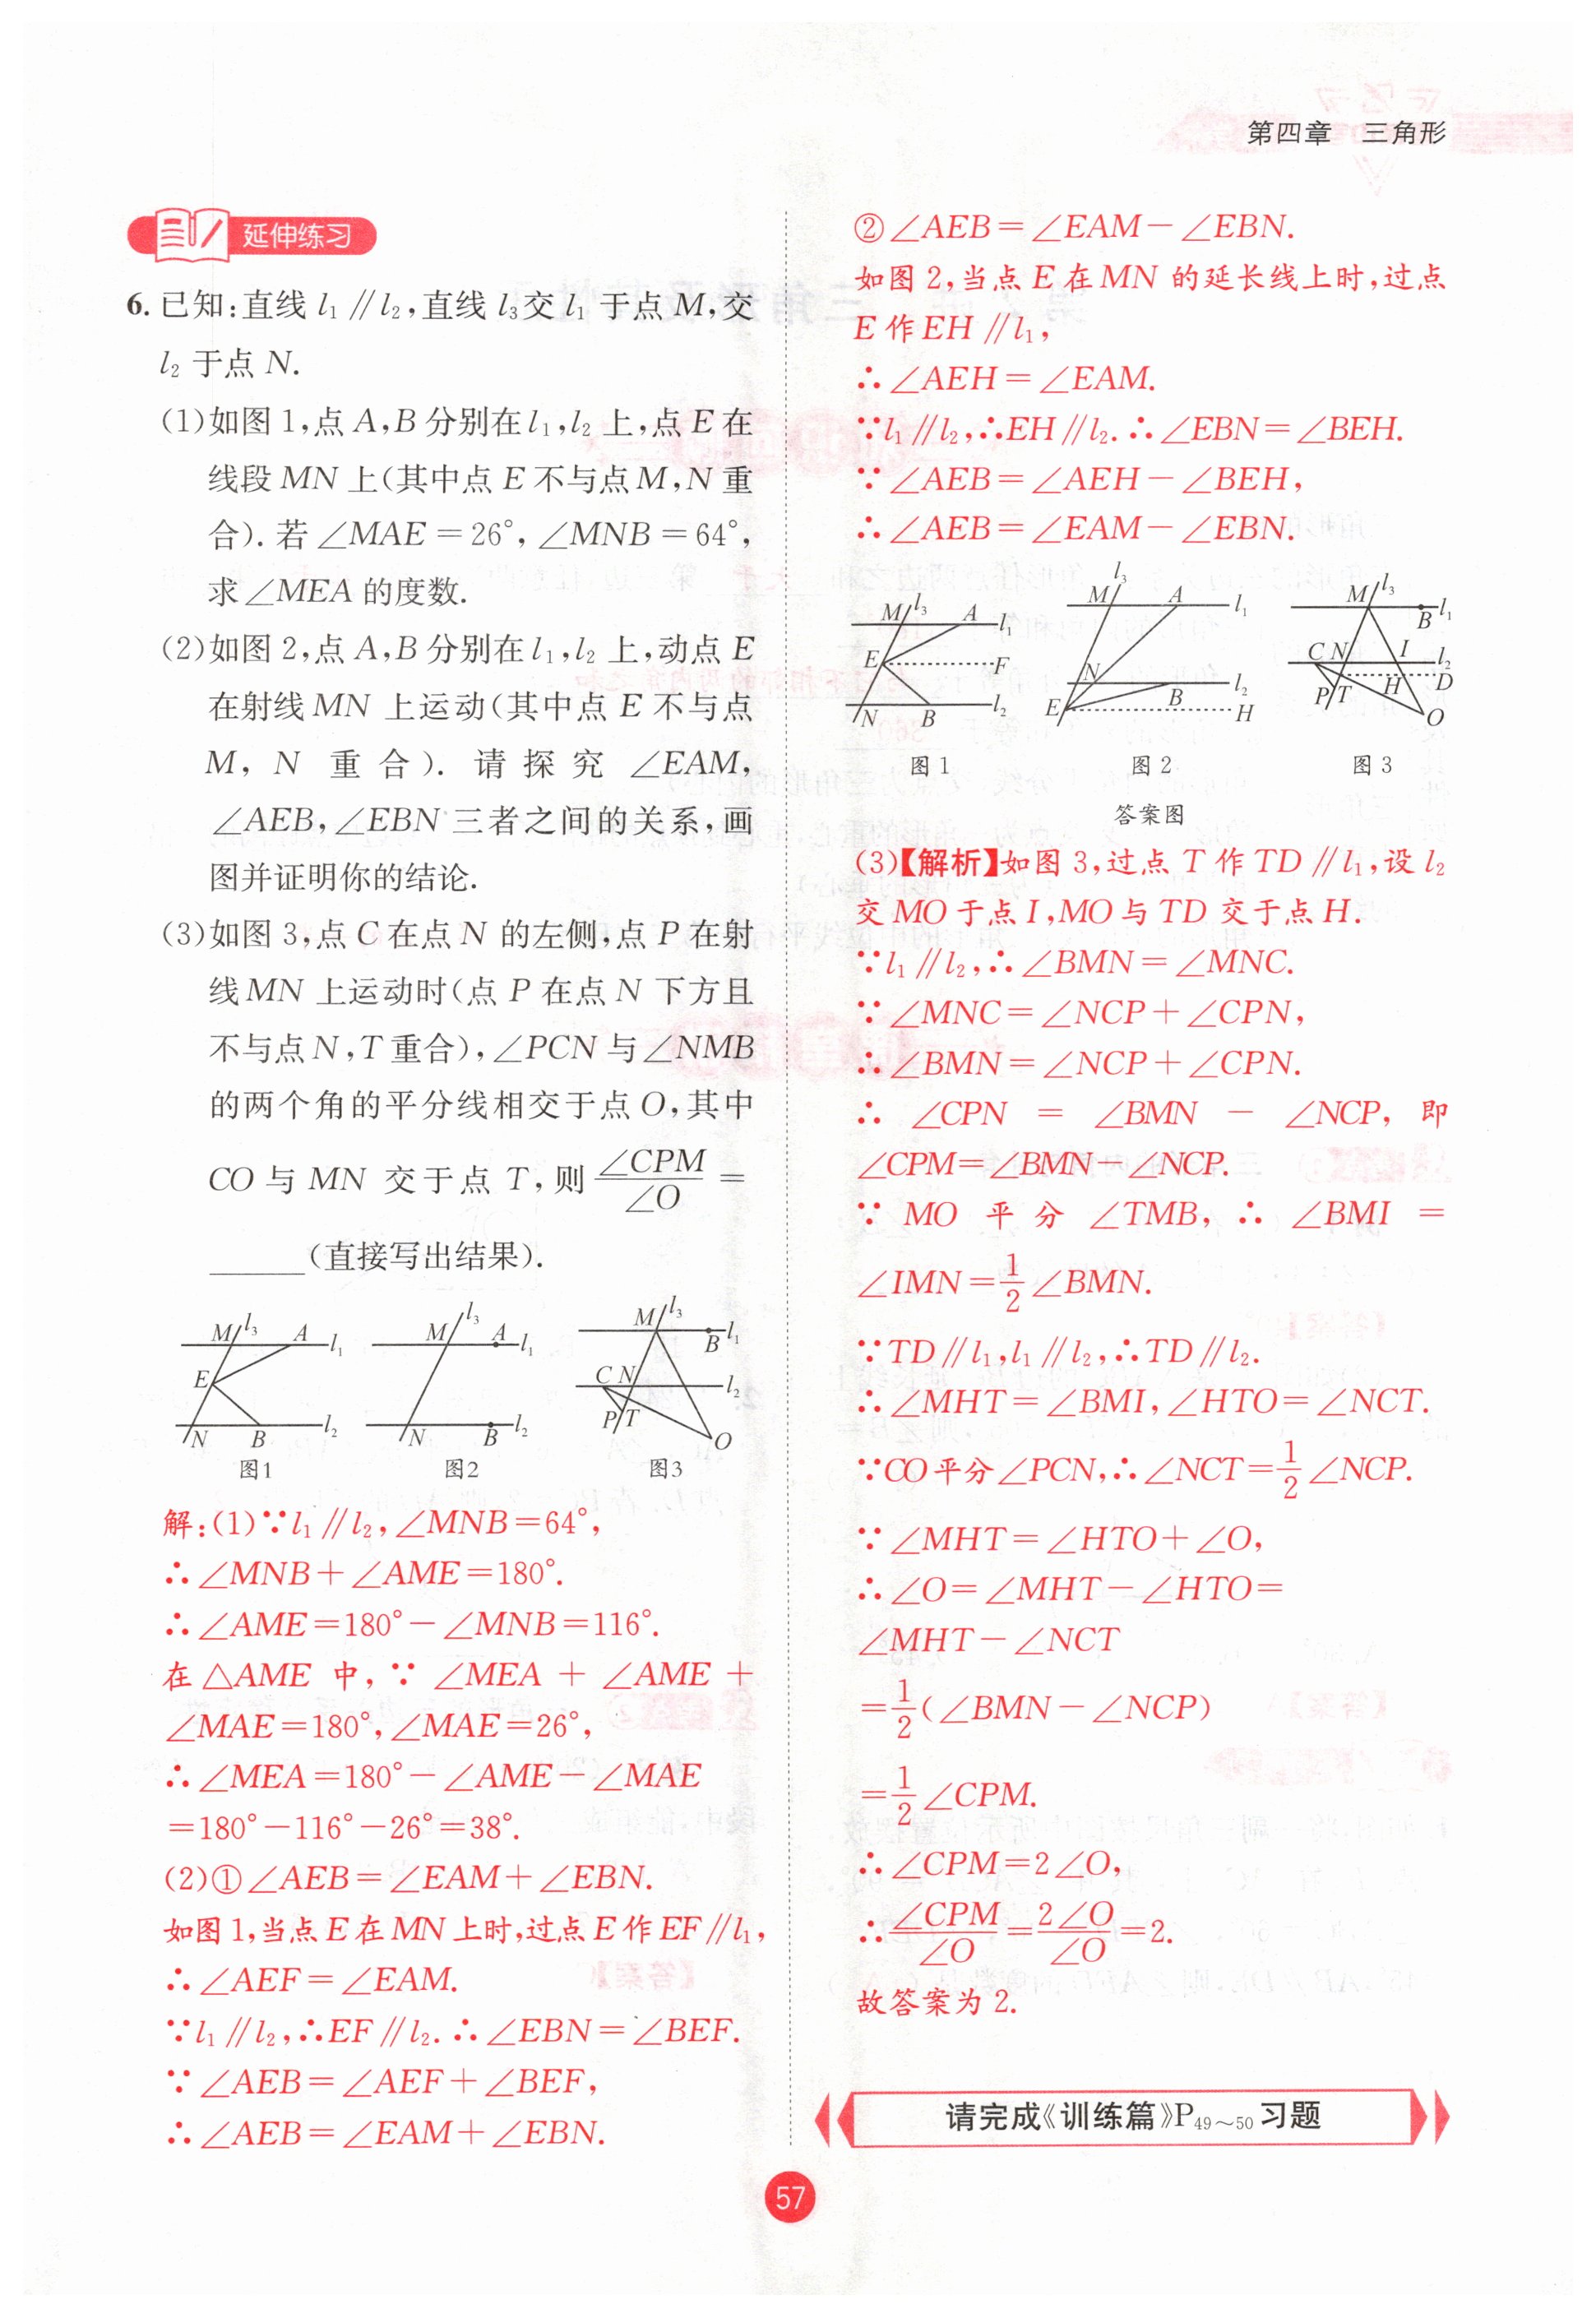 第四章 三角形
延伸练习
6. 已知:直线 l₁∥l₂,直线 l₃交 l₁ 于点 M,交
l₂ 于点 N.
(1)如图 1,点 A,B 分别在 l₁,l₂ 上,点 E 在
线段 MN 上(其中点 E 不与点 M,N 重
合). 若∠MAE=26°,∠MNB=64°,
求∠MEA 的度数.
(2)如图 2,点 A,B 分别在 l₁,l₂ 上,动点 E
在射线 MN 上运动(其中点 E 不与点
M, N 重合). 请探究 ∠EAM,
∠AEB,∠EBN 三者之间的关系,画
图并证明你的结论.
(3)如图 3,点 C 在点 N 的左侧,点 P 在射
线 MN 上运动时(点 P 在点 N 下方且
不与点 N,T 重合),∠PCN 与∠NMB
的两个角的平分线相交于点 O,其中
CO 与 MN 交于点 T,则 ∠CPM/∠O =
______(直接写出结果).
M l₃ A l₁ E N B l₂
M l₃ A l₁ N B l₂
M l₃ B l₁ C N l₂ P T O
图1 图2 图3
解:(1)∵l₁∥l₂,∠MNB=64°,
∴∠MNB+∠AME=180°.
∴∠AME=180°-∠MNB=116°.
在△AME 中,∵∠MEA+∠AME+
∠MAE=180°,∠MAE=26°,
∴∠MEA=180°-∠AME-∠MAE
=180°-116°-26°=38°.
(2)①∠AEB=∠EAM+∠EBN.
如图 1,当点 E 在 MN 上时,过点 E 作 EF∥l₁,
∴∠AEF=∠EAM.
∵l₁∥l₂,∴EF∥l₂.∴∠EBN=∠BEF.
∵∠AEB=∠AEF+∠BEF,
∴∠AEB=∠EAM+∠EBN.
②∠AEB=∠EAM-∠EBN.
如图 2,当点 E 在 MN 的延长线上时,过点
E 作 EH∥l₁,
∴∠AEH=∠EAM.
∵l₁∥l₂,∴EH∥l₂.∴∠EBN=∠BEH.
∵∠AEB=∠AEH-∠BEH,
∴∠AEB=∠EAM-∠EBN.
M l₃ A l₁ E F N B l₂
l₃ M A l₁ N B l₂ E H
M l₃ B l₁ C N I l₂ P T H D O
图 1 图 2 图 3
答案图
(3)【解析】如图 3,过点 T 作 TD∥l₁,设 l₂
交 MO 于点 I,MO 与 TD 交于点 H.
∵l₁∥l₂,∴∠BMN=∠MNC.
∵∠MNC=∠NCP+∠CPN,
∴∠BMN=∠NCP+∠CPN.
∴ ∠CPN = ∠BMN - ∠NCP, 即
∠CPM=∠BMN-∠NCP.
∵ MO 平分 ∠TMB, ∴ ∠BMI =
∠IMN=1/2∠BMN.
∵TD∥l₁,l₁∥l₂,∴TD∥l₂.
∴∠MHT=∠BMI,∠HTO=∠NCT.
∵CO平分∠PCN,∴∠NCT=1/2∠NCP.
∵∠MHT=∠HTO+∠O,
∴∠O=∠MHT-∠HTO=
∠MHT-∠NCT
=1/2(∠BMN-∠NCP)
=1/2∠CPM.
∴∠CPM=2∠O,
∴∠CPM/∠O=2∠O/∠O=2.
故答案为 2.
请完成《训练篇》P₄₉～₅₀习题
57